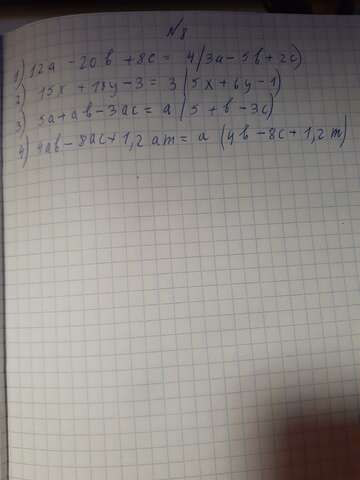 №8
1) 12a - 20b + 8c = 4(3a - 5b + 2c)
2) 15x + 18y - 3 = 3(5x + 6y - 1)
3) 5a + ab - 3ac = a(5 + b - 3c)
4) 4ab - 8ac + 1,2am = a(4b - 8c + 1,2m)